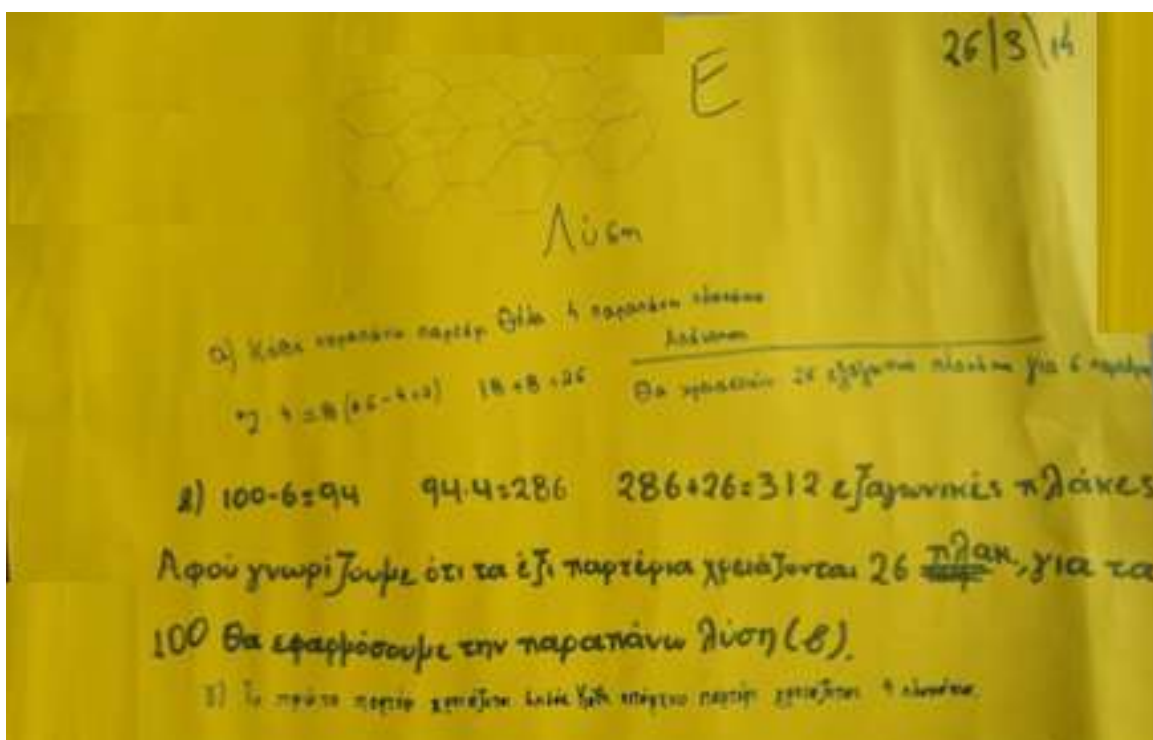 26/3/14
Ε
Λύση
α) Κάθε παραπάνω παρτέρι θέλει 4 παραπάνω πλακάκια
2·4=8 (6-4=2) 18+8=26
Θα χρειαστούν 26 εξαγωνικά πλακάκια για 6 παρτέρια
β) 100-6=94 94·4=286 286+26=312 εξαγωνικές πλάκες
Αφού γνωρίζουμε ότι τα έξι παρτέρια χρειάζονται 26 πλακ, για τα
100 θα εφαρμόσουμε την παραπάνω λύση (β).
γ) Το πρώτο παρτέρι χρειάζεται Κάθε επόμενο παρτέρι χρειάζεται 4 πλακάκια.